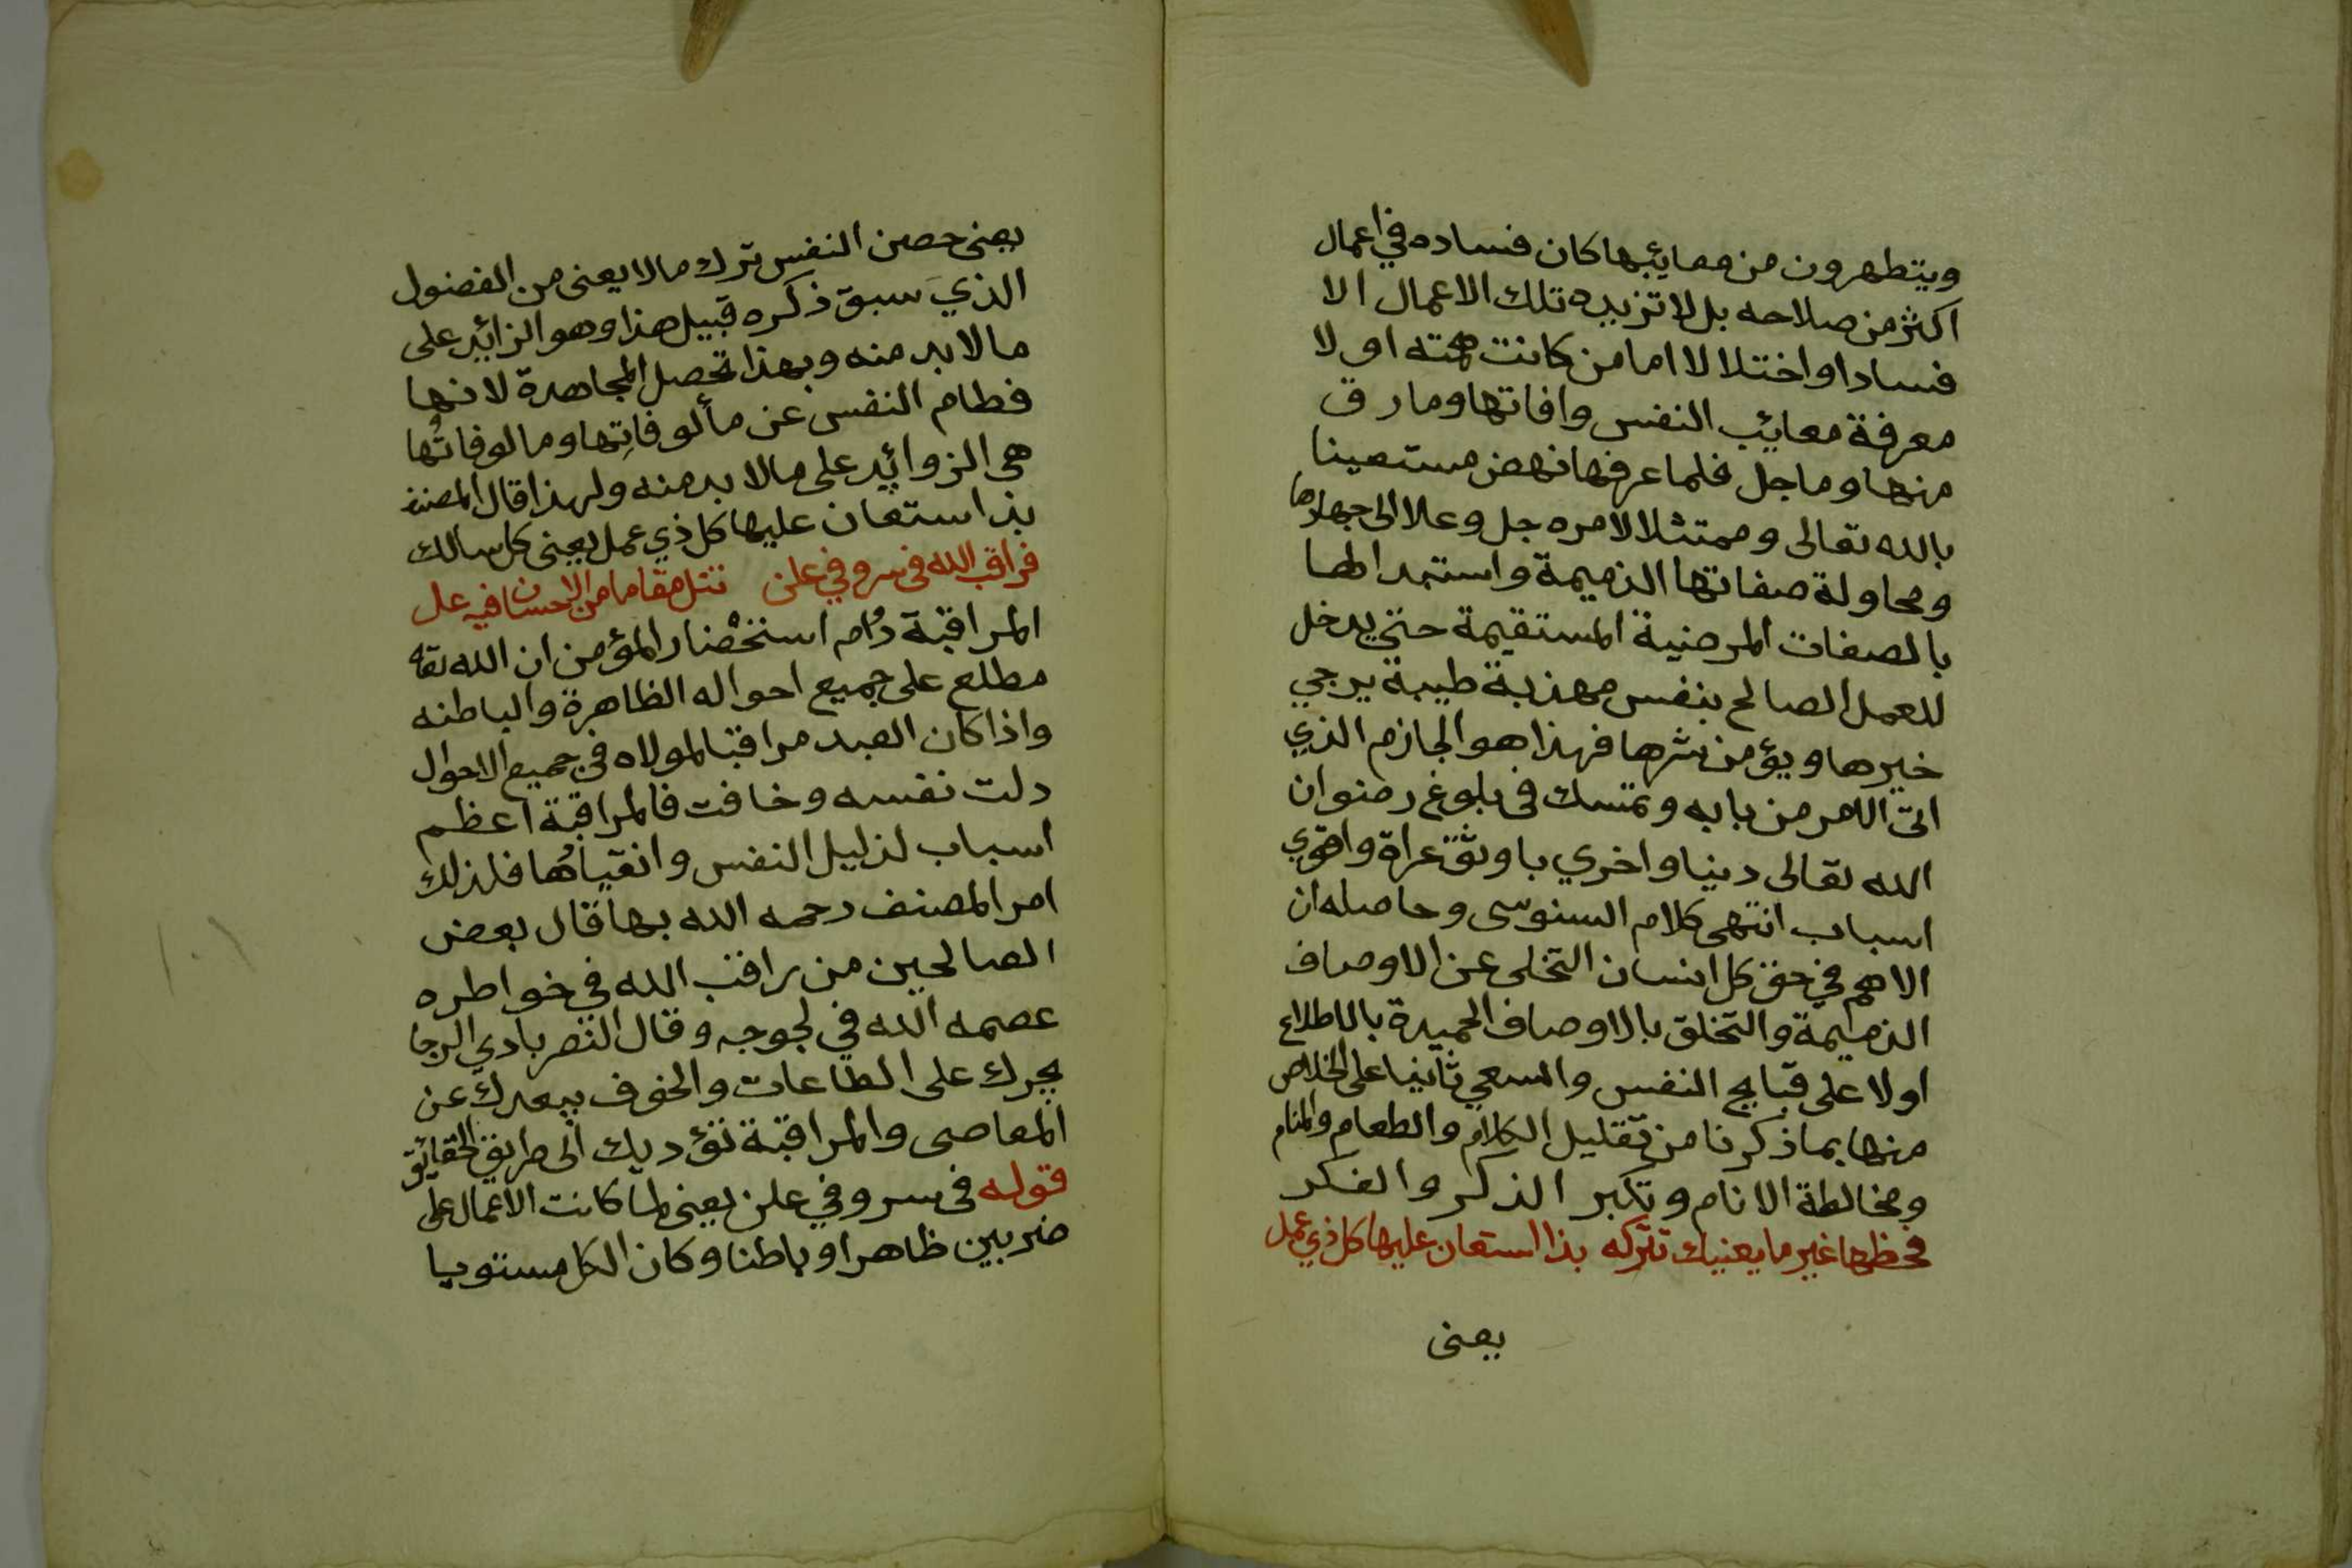 ويتطهرون من معايبها كان فساده في اعمال
اكثر من صلاحه بل لا تزيده تلك الاعمال الا
فسادا واختلالا اما من كانت همته اولا
معرفة معائب النفس وافاتها وما رق
منها وما جل فلما عرفها نهض مستعينا
بالله تعالى وممتثلا لامره جل وعلا الى جهادها
ومحاولة صفاتها الذميمة واستبدالها
بالصفات المرضية المستقيمة حتي يدخل
للعمل الصالح بنفس مهذبة طيبة يرجي
خيرها ويؤمن شرها فهذا هو الجازم الذي
اتى الامر من بابه وتمسك في بلوغ رضوان
الله تعالى دنيا واخري باوثق عراة واقوي
اسباب انتهى كلام السنوسى وحاصله ان
الاهم في حق كل انسان التخلى عن الاوصاف
الذميمة والتخلق بالاوصاف الحميدة بالاطلاع
اولا على قبايح النفس والسعي ثانيا على الخلاص
منها بما ذكرنا من تقليل الكلام والطعام والمنام
ومخالطة الانام وتكبر الذكر والفكر
فحظها غير ما يعنيك تتركه بذا استعان عليها كل ذي عمل
يعنى
يعنى حصن النفس ترك ما لا يعنى من الفضول
الذي سبق ذكره قبيل هذا وهو الزائد على
ما لا بد منه وبهذا تحصل المجاهدة لانها
فطام النفس عن مألوفاتِها ومالوفاتُها
هى الزوائد على ما لا بد منه ولهذا قال المصنف
بذا استعان عليها كل ذي عمل يعنى كل سالك
فراقب الله فى سر وفي علن تنل مقاما من الاحسان فيه عل
المراقبة دُام استخْضار المؤمن ان الله تعا
مطلع على جميع احواله الظاهرة والباطنه
واذا كان العبد مراقبا لمولاه في جميع الاحوال
دلت نفسه وخافت فالمراقبة اعظم
اسباب لذليل النفس وانقيادُها فلذلك
امر المصنف رحمه الله بها قال بعض
الصالحين من راقب الله في خواطره
عصمه الله في لجوجه وقال النصر بادي الرجا
يجرك على الطاعات والخوف يبعدك عن
المعاصى والمراقبة تؤديك الى طريق الحقائق
قوله فى سر وفي علن يعنى لما كانت الاعمال على
ضربين ظاهرا وباطنا وكان الكل مستويا